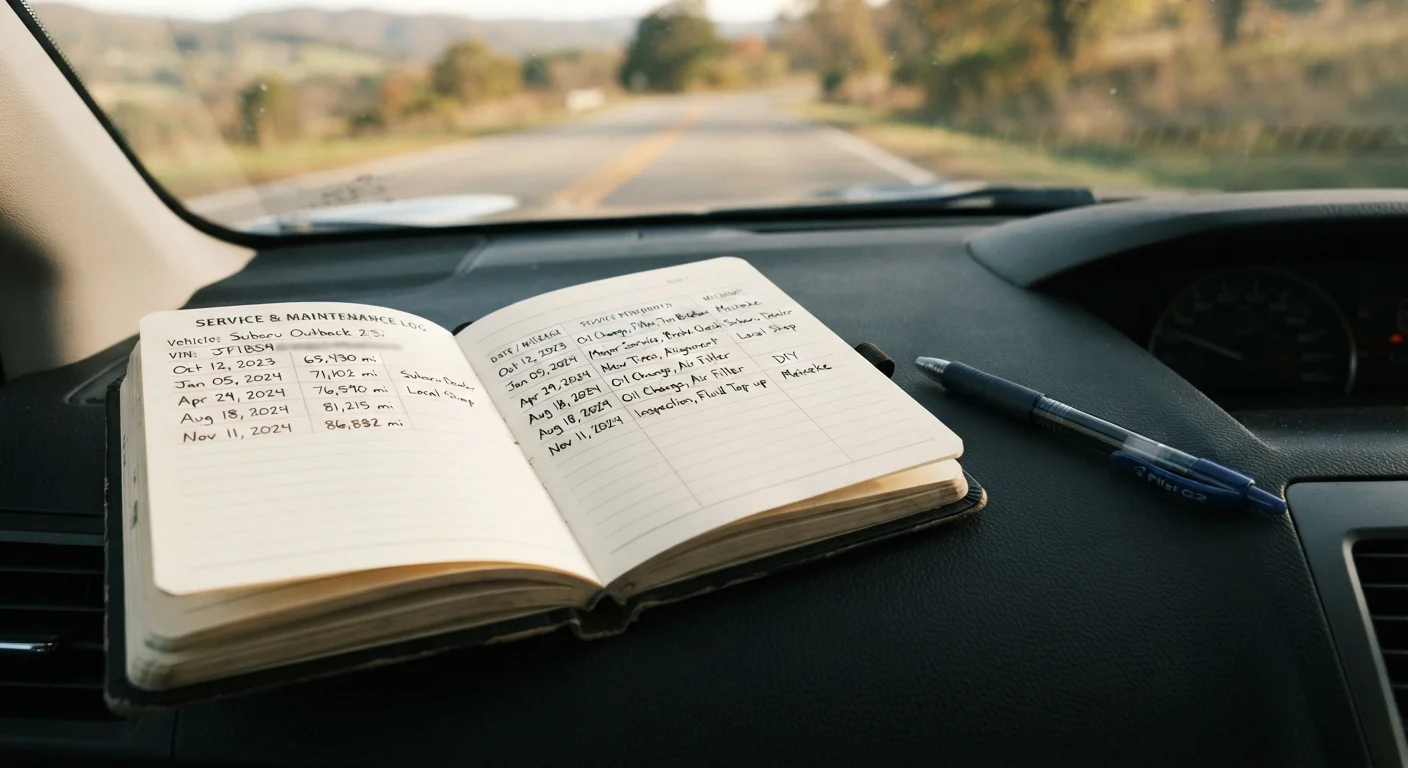 SERVICE & MAINTENANCE LOG
Vehicle: Subaru Outback 2.5i
VIN: JF1BS9
Oct 12, 2023 65,430 mi
Jan 05, 2024 71,102 mi Subaru Dealer
Apr 24, 2024 76,590 mi Local Shop
Aug 18, 2024 81,215 mi
Nov 11, 2024 86,832 mi
DATE / MILEAGE SERVICE
Oct 12, 2023 Oil Change,
Jan 05, 2024 Major Service, Brake Check Subaru Dealer
Apr 29, 2024 New Tires, Alignment Local Shop
Aug 18, 2024 Oil Change, Air Filter
Aug 18, 2024 Oil Change, Air Filter DIY
Nov 11, 2024 Inspection, Fluid Top up
Pilot G2